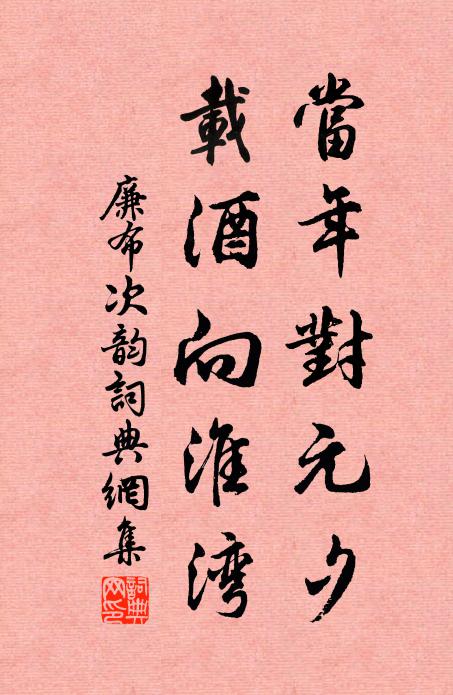 當年對元夕
載酒向淮湾
廉布次韵詞典網集
詞典网印